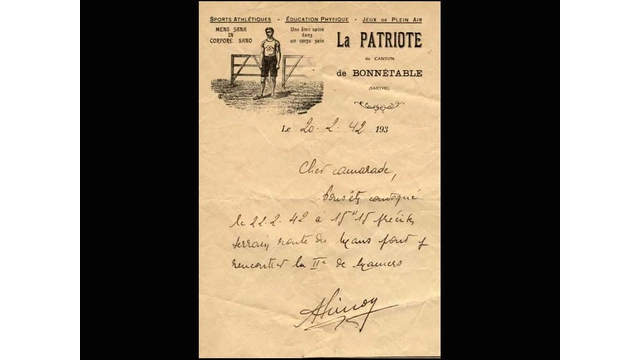 SPORTS ATHLÉTIQUES - ÉDUCATION PHYSIQUE - JEUX DE PLEIN AIR
MENS SANA
IN
CORPORE SANO
Une âme saine
dans
un corps sain
LA PATRIOTE
du CANTON
de BONNÉTABLE
(SARTHE)
Le 20.2.42 193
Cher camarade,
Vous êtes convoqué
le 22 2. 42 à 15h 15 précises
terrain route du Mans pour y
rencontrer la IIe de Mamers